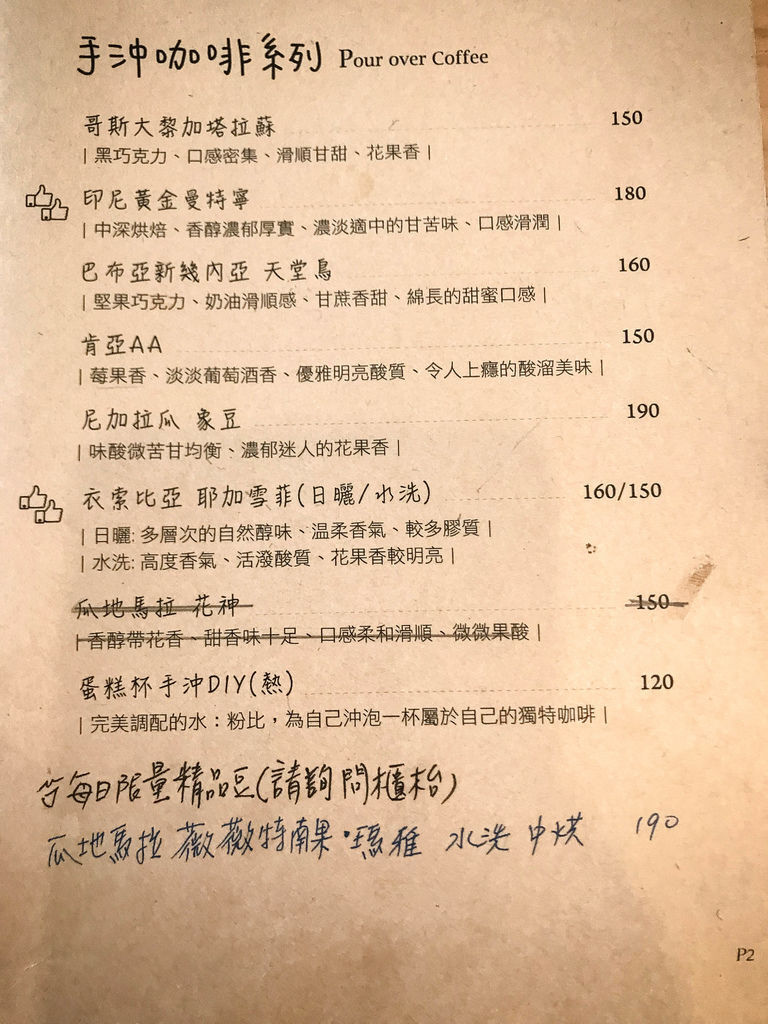 手沖咖啡系列 Pour over Coffee
哥斯大黎加塔拉蘇 150
| 黑巧克力、口感密集、滑順甘甜、花果香 |
印尼黃金曼特寧 180
| 中深烘焙、香醇濃郁厚實、濃淡適中的甘苦味、口感滑潤 |
巴布亞新幾內亞 天堂鳥 160
| 堅果巧克力、奶油滑順感、甘蔗香甜、綿長的甜蜜口感 |
肯亞AA 150
| 莓果香、淡淡葡萄酒香、優雅明亮酸質、令人上癮的酸溜美味 |
尼加拉瓜 象豆 190
| 味酸微苦甘均衡、濃郁迷人的花果香 |
衣索比亞 耶加雪菲(日曬/水洗) 160/150
| 日曬: 多層次的自然醇味、温柔香氣、較多膠質 |
| 水洗: 高度香氣、活潑酸質、花果香較明亮 |
瓜地馬拉 花神 150
| 香醇帶花香、甜香味十足、口感柔和滑順、微微果酸 |
蛋糕杯手沖DIY(熱) 120
| 完美調配的水：粉比，為自己沖泡一杯屬於自己的獨特咖啡 |
每日限量精品豆(請詢問櫃枱)
瓜地馬拉 薇薇特南果·瑪雅 水洗 中烘 190
P2